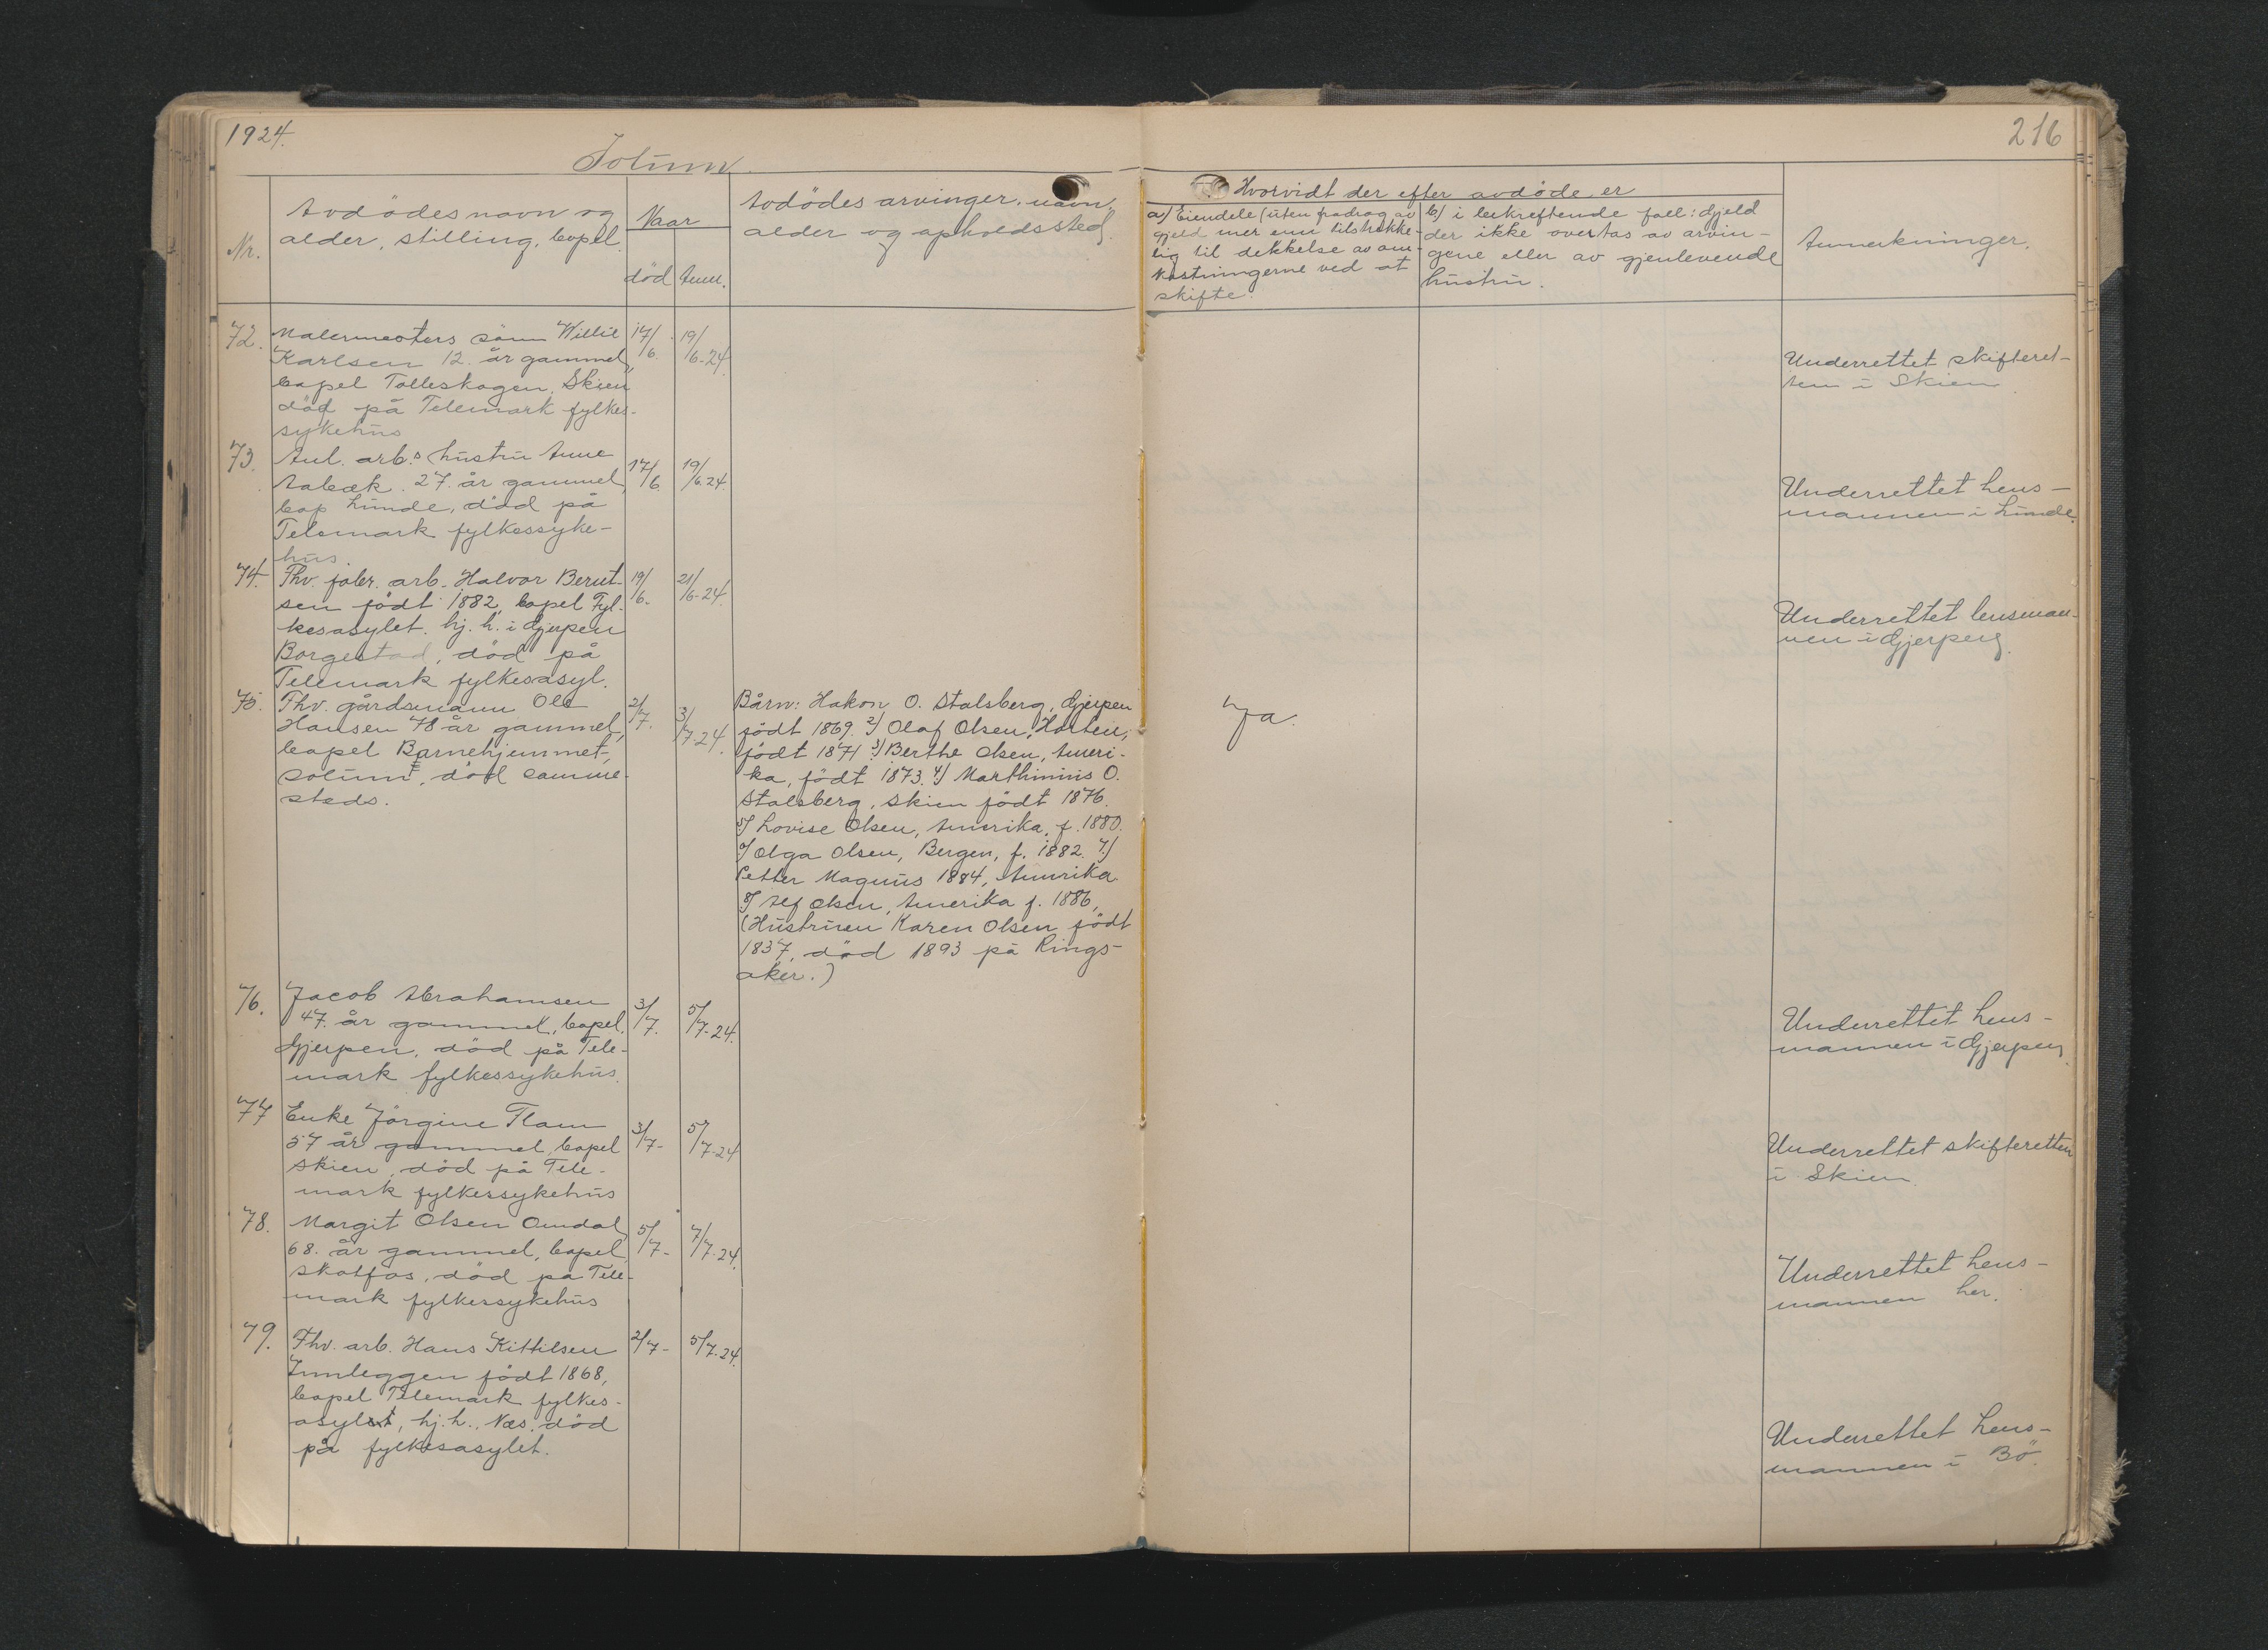 1924.
216
Solum.
Nr.
Avdödes navn og
alder, stilling, bopel.
Naar
död
Anm.
Avdödes arvinger, navn,
alder og opholdssted.
Hvorvidt der efter avdöde er
a) Eiendele (uten fradrag av
gjeld mer enn tilstrekke-
lig til dekkelse av om-
kostningerne ved at
skifte.
b) i bekreftende fall: Gjeld
der ikke overtas av arvin-
gene eller av gjenlevende
hustru.
Anmerkninger.
72.
Malermesters sönn Willie
Karlsen 12 år gammel,
bopel Tolleskogen, Skien
död på Telemark fylkes-
sykehus
17/6.
19/6-24.
Underrettet skifteret-
ten i Skien
73.
Anl. arb.s hustru Anne
Aabæk 27 år gammel,
bop Lunde, död på
Telemark fylkessyke-
hus.
17/6.
19/6.24.
Underrettet lens-
mannen i Lunde.
74.
Fhv. fabr. arb. Halvor Bernt-
sen födt 1882, bopel Fyl-
kesasylet. hj. h. i Gjerpen
Borgestad, död på
Telemark fylkesasyl.
19/6-
21/6-24.
Underrettet lensman-
nen i Gjerpen
75.
Fhv. gårdsmann Ole
Hansen 78 år gammel,
bopel Barnehjemmet,
Solum, död samme-
steds.
2/7.
3/7.24.
Bårn: Hakon O. Stalsberg, Gjerpen
födt 1869. 2) Olaf Olsen, Horten,
födt 1871 3) Berthe Olsen, Ameri-
ka, födt 1873. 4) Marthinius O.
Stalsberg, Skien födt 1876.
5) Lovise Olsen, Amerika, f. 1880.
6) Olga Olsen, Bergen, f. 1882. 7.)
Petter Magnus 1884, Amerika
8) Alf Olsen, Amerika f. 1886,
(Hustruen Karen Olsen födt
1837, död 1893 på Rings-
aker.)
Ja.
76.
Jacob Abrahamsen
47. år gammel, bopel.
Gjerpen, död på Tele-
mark fylkessykehus.
3/7.
5/7-24.
Underrettet lens-
mannen i Gjerpen
77
Enke Jörgine Flom
57 år gammel, bopel
Skien, död på Tele-
mark fylkessykehus
3/7-
5/7-24
Underrettet skifteretten
i Skien
78.
Margit Olsen Omdal,
68. år gammel, bopel
Skotfos, död på Tele-
mark fylkessykehus
5/7-
7/7-24.
Underrettet lens-
mannen her.
79.
Fhv. arb. Hans Kittilsen
Innleggen födt 1868,
bopel Telemark fylkes-
asylet, hj. h. Næs. död
på fylkesasylet.
2/7-
5/7-24.
Underrettet lens-
mannen i Bö.